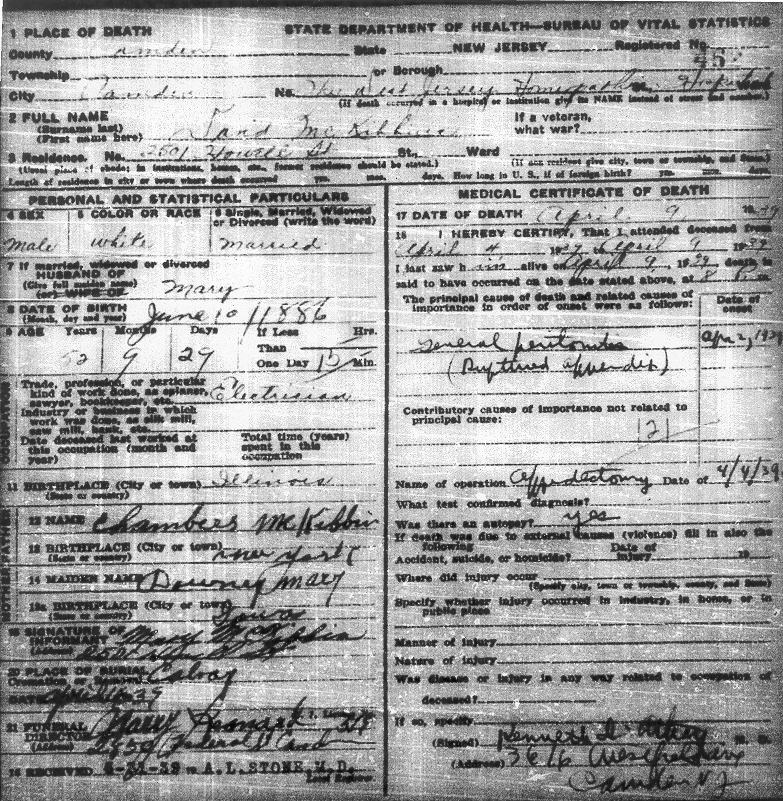 1 PLACE OF DEATH
STATE DEPARTMENT OF HEALTH—BUREAU OF VITAL STATISTICS
County Camden State NEW JERSEY Registered No. 45
Township or Borough
City Camden No. The West Jersey Homeopathic Hospital
(If death occurred in a hospital or institution give its NAME instead of street and number.)
2 FULL NAME
(Surname last)
(First name here) David McKibbin
If a veteran,
what war?
3 Residence. No. Howell St St., Ward
(Usual place of abode; in institutions, homes, etc., former residence should be stated.)
(If non resident give city, town or township, and State.)
Length of residence in city or town where death occurred yrs. mos. days. How long in U. S., if of foreign birth? yrs. mos. days.
PERSONAL AND STATISTICAL PARTICULARS
4 SEX
Male
5 COLOR OR RACE
white
6 Single, Married, Widowed
or Divorced (write the word)
married
7 If married, widowed or divorced
HUSBAND OF
(Give full maiden name)
(or) WIFE OF Mary
8 DATE OF BIRTH
(Month, day and year) June 10 1886
9 AGE Years Months Days
52 9 29
If Less
Than
One Day Hrs.
15 Min.
OCCUPATION
Trade, profession, or particular
kind of work done, as spinner,
sawyer, bookkeeper, etc. Electrician
Industry or business in which
work was done, as silk mill,
saw mill, bank, etc.
Date deceased last worked at
this occupation (month and
year)
Total time (years)
spent in this
occupation
11 BIRTHPLACE (City or town) Illinois
(State or country)
12 NAME Chambers McKibbin
13 BIRTHPLACE (City or town)
(State or country) New York
14 MAIDEN NAME Downey Mary
BIRTHPLACE (City or town)
(State or country) Iowa
SIGNATURE OF
INFORMANT Mary McKibbin
(Address)
PLACE OF BURIAL
Calvary
DATE
21 FUNERAL
DIRECTOR Harry
(Address) Federal St Camd
RECEIVED A. L. STONE, M. D.
MEDICAL CERTIFICATE OF DEATH
17 DATE OF DEATH April 9 1939
18 I HEREBY CERTIFY, That I attended deceased from
April 4 1939 April 9 1939
I last saw him alive on April 9, 1939 death is
said to have occurred on the date stated above, at 8 P. m.
The principal cause of death and related causes of
importance in order of onset were as follows:
Date of
onset
General peritonitis Apr 2, 1939
(Ruptured appendix)
Contributory causes of importance not related to
principal cause:
121
Name of operation Appendectomy Date of 4/4/39
What test confirmed diagnosis?
Was there an autopsy? yes
If death was due to external causes (violence) fill in also the
following
Accident, suicide, or homicide? Date of
injury 19
Where did injury occur
(Specify city, town or township, county, and State)
Specify whether injury occurred in industry, in home, or in
public place
Manner of injury
Nature of injury
Was disease or injury in any way related to occupation of
deceased?
If so, specify
(Signed) Kenneth
(Address) Westfield Ave
Camden N J